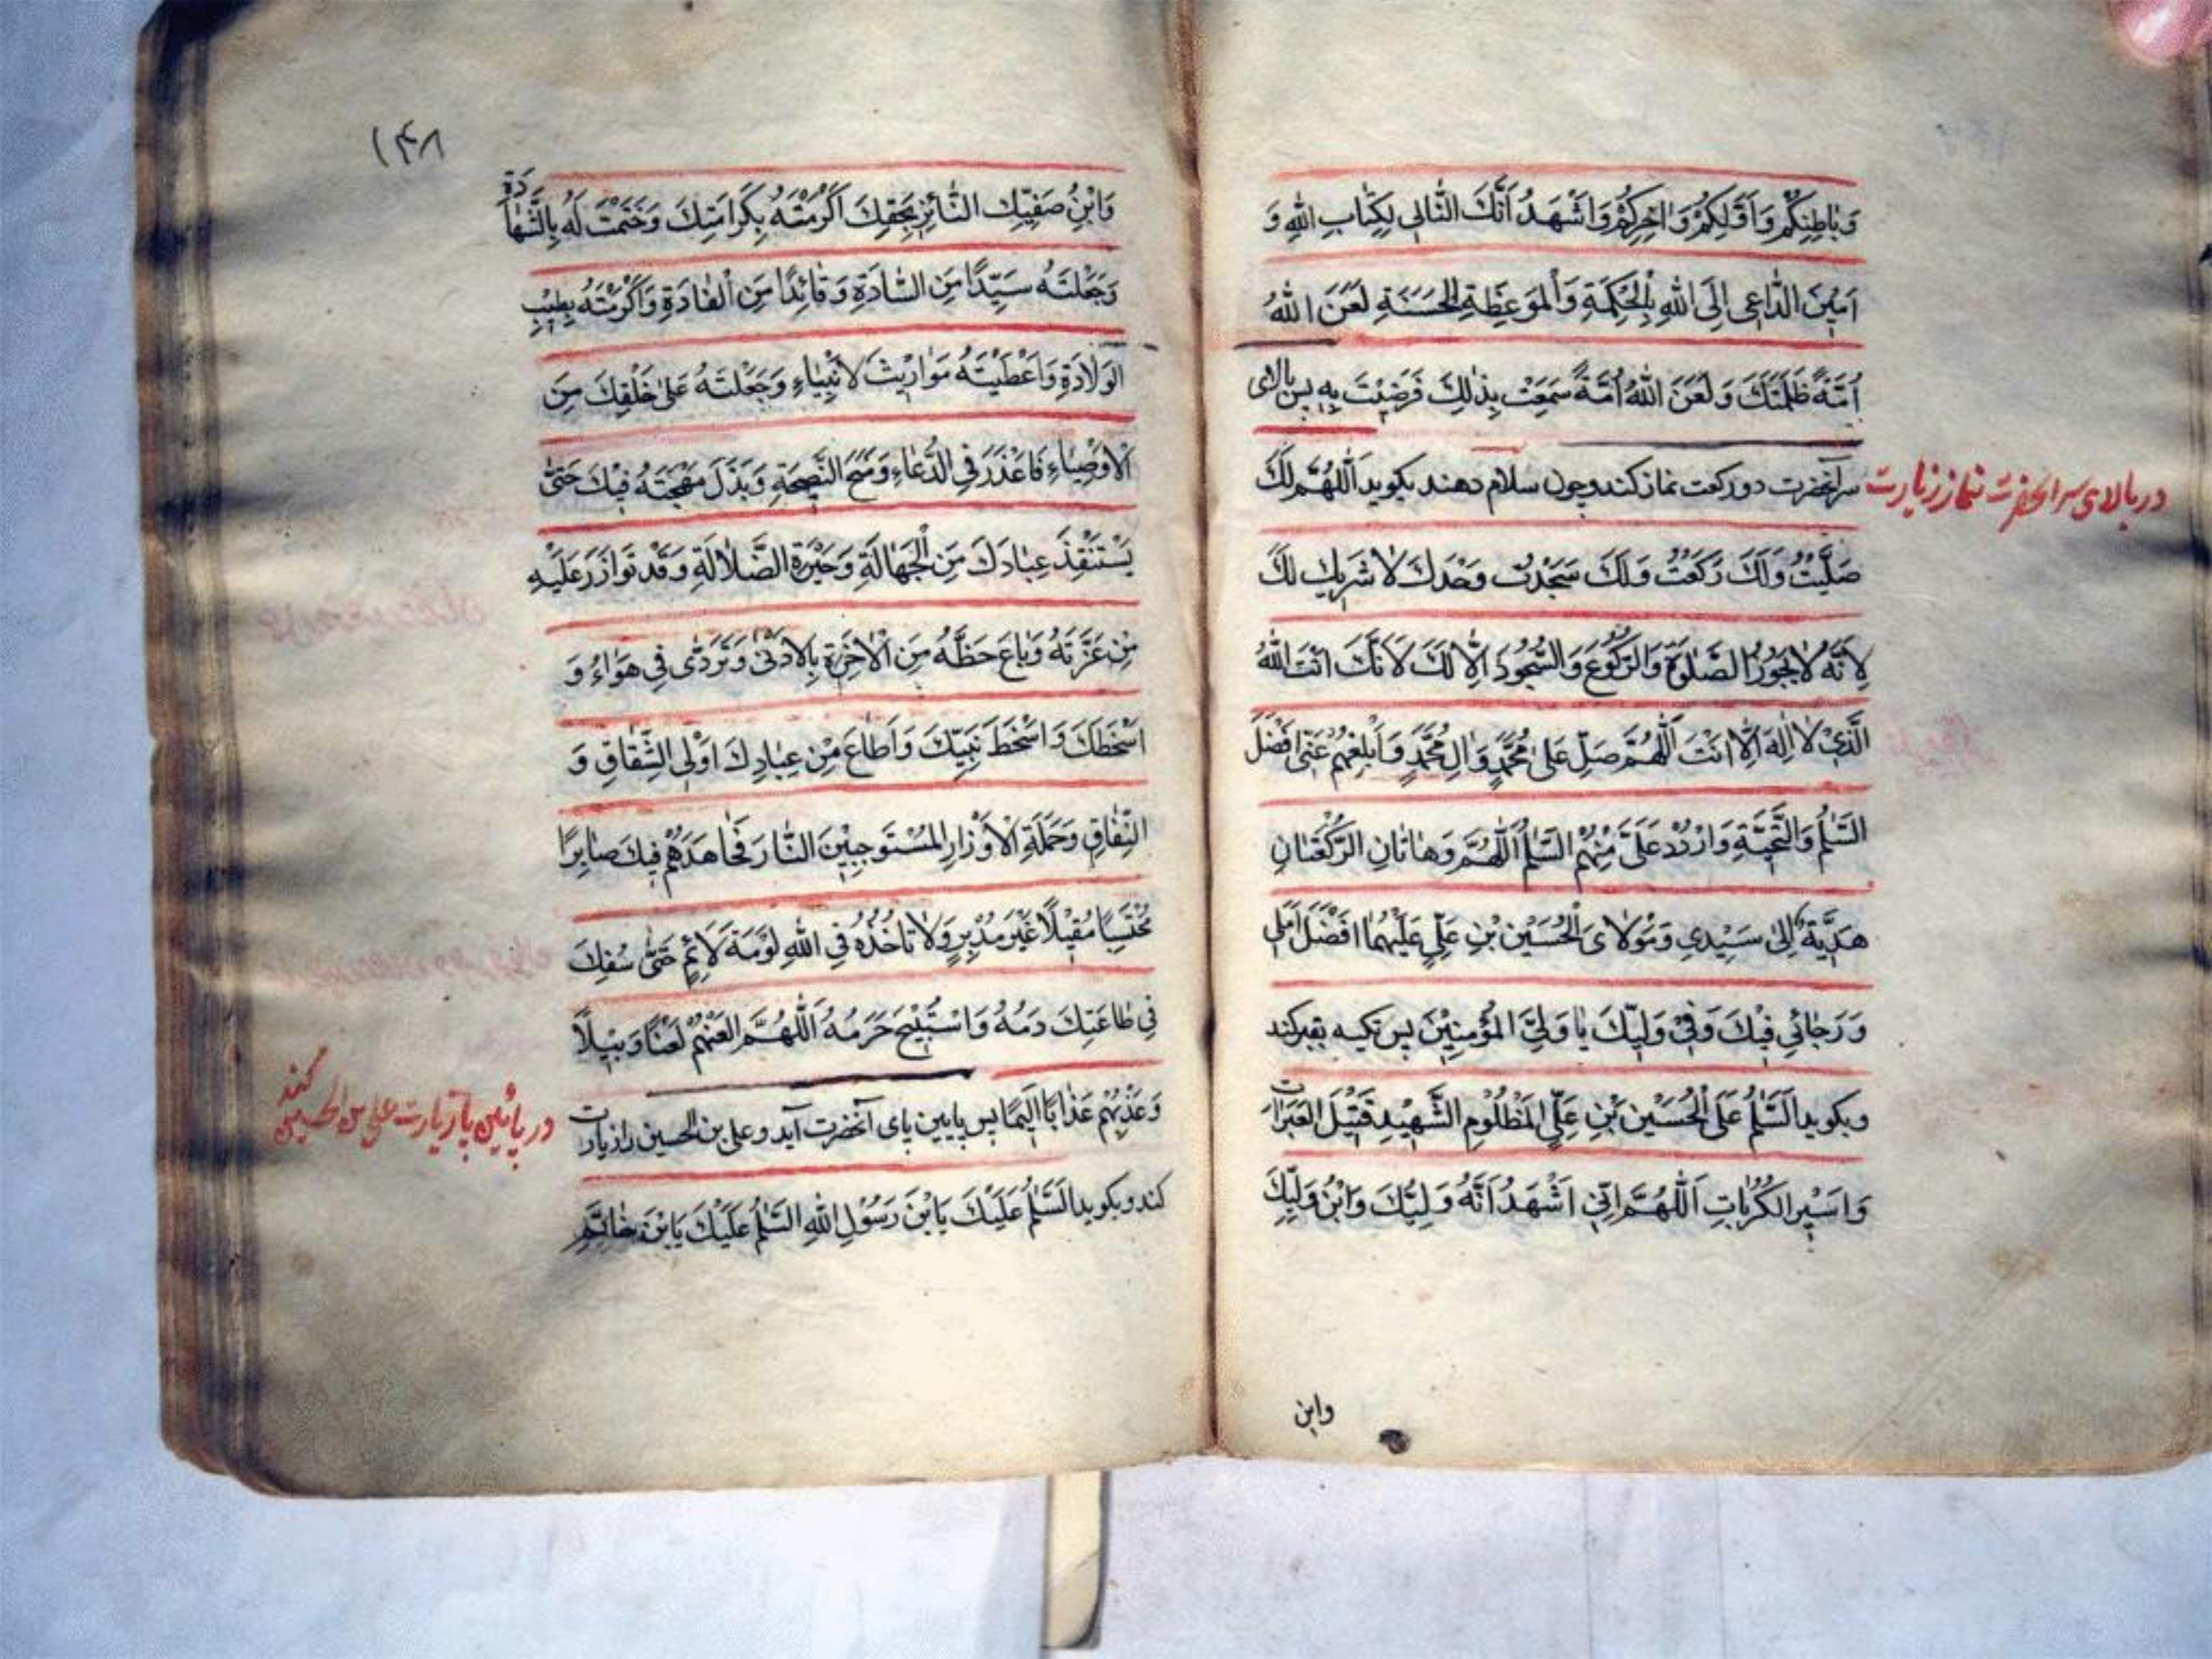 وَبٰاطِنِكُمْ وَاَوَّلِكُمْ وَاٰخِرِكُمْ وَاَشْهَدُ اَنَّكَ التّٰالى لِكِتٰابِ اللهِ وَ
اَمٖينَ الدّٰاعى اِلَى اللهِ بِالْحِكْمَةِ وَالْمَوْعِظَةِ الْحَسَنَةِ لَعَنَ اللهُ
اُمَّةً ظَلَمَتْكَ وَلَعَنَ اللهُ اُمَّةً سَمِعَتْ بِذٰلِكَ فَرَضِيَتْ بِهٖ پس بالاى
سر آنحضرت دو ركعت نماز كند و چون سلام دهند بكويد اَللّٰهُمَّ لَكَ
در بالاى سر انحضرت نماز زيارت
صَلَّيْتُ وَلَكَ رَكَعْتُ وَلَكَ سَجَدْتُ وَحْدَكَ لٰا شَريكَ لَكَ
لِاَنَّهُ لٰا يَجُوزُ الصَّلٰوةُ وَالرُّكُوعُ وَالسُّجُودُ اِلّٰا لَكَ لِاَنَّكَ اَنْتَ اللهُ
الَّذى لٰا اِلٰهَ اِلّٰا اَنْتَ اَللّٰهُمَّ صَلِّ عَلىٰ مُحَمَّدٍ وَاٰلِ مُحَمَّدٍ وَاَبْلِغْهُمْ عَنّى اَفْضَلَ
السَّلٰمِ وَالتَّحِيَّةِ وَارْدُدْ عَلَىَّ مِنْهُمُ السَّلٰمَ اَللّٰهُمَّ وَهٰاتٰانِ الرَّكْعَتٰانِ
هَدِيَّةٌ اِلىٰ سَيِّدى وَمَوْلٰاىَ الْحُسَيْنِ بْنِ عَلِىٍّ عَلَيْهِمٰا اَفْضَلَ اَمَلى
وَرَجٰائى فيكَ وَفى وَلِيِّكَ يٰا وَلِىَّ الْمُؤْمِنينَ پس تكيه بقبر كند
وبكويد اَلسَّلٰمُ عَلَى الْحُسَيْنِ بْنِ عَلِىٍّ الْمَظْلُومِ الشَّهيدِ قَتيلِ الْعَبَرٰاتِ
وَاَسيرِ الْكُرُبٰاتِ اَللّٰهُمَّ اِنّى اَشْهَدُ اَنَّهُ وَلِيُّكَ وَابْنُ وَلِيِّكَ
وابن
١۴٨
وَابْنُ صَفِيِّكَ الثّٰائِرُ بِحَقِّكَ اَكْرَمْتَهُ بِكَرٰامَتِكَ وَخَتَمْتَ لَهُ بِالشَّهٰادَةِ
وَجَعَلْتَهُ سَيِّدًا مِنَ السّٰادَةِ وَقٰائِدًا مِنَ الْقٰادَةِ وَاَكْرَمْتَهُ بِطيبِ
الْوِلٰادَةِ وَاَعْطَيْتَهُ مَوٰاريثَ لْاَنْبِيٰاءِ وَجَعَلْتَهُ عَلىٰ خَلْقِكَ مِنَ
الْاَوْصِيٰاءِ فَاَعْذَرَ فِى الدُّعٰاءِ وَمَنَحَ النَّصيحَةَ وَبَذَلَ مُهْجَتَهُ فيكَ حَتّىٰ
يَسْتَنْقِذَ عِبٰادَكَ مِنَ الْجَهٰالَةِ وَحَيْرَةِ الضَّلٰالَةِ وَقَدْ تَوٰازَرَ عَلَيْهِ
مَنْ غَرَّتْهُ وَبٰاعَ حَظَّهُ مِنَ الْاٰخِرَةِ بِالْاَدْنىٰ وَتَرَدّٰى فى هَوٰاءُ وَ
اَسْخَطَكَ وَاَسْخَطَ نَبِيَّكَ وَاَطٰاعَ مِنْ عِبٰادِكَ اُولِى الشِّقٰاقِ وَ
النِّفٰاقِ وَحَمَلَةِ الْاَوْزٰارِ الْمُسْتَوْجِبينَ النّٰارَ فَجٰاهَدَهُمْ فيكَ صٰابِرًا
مُحْتَسِبًا مُقْبِلًا غَيْرَ مُدْبِرٍ وَلٰا تَاْخُذُهُ فِى اللهِ لَوْمَةُ لٰائِمٍ حَتّىٰ سُفِكَ
فى طٰاعَتِكَ دَمُهُ وَاسْتُبيحَ حَرَمُهُ اَللّٰهُمَّ الْعَنْهُمْ لَعْنًا وَبيلًا
وَعَذِّبْهُمْ عَذٰابًا اَليمًا پس پايين پاى آنحضرت آيد و على بن الحسين را زيارت
در پائين پا زيارت على بن الحسين كند
كند و بكويد اَلسَّلٰمُ عَلَيْكَ يَابْنَ رَسُولِ اللهِ السَّلٰمُ عَلَيْكَ يَابْنَ خٰاتَمِ